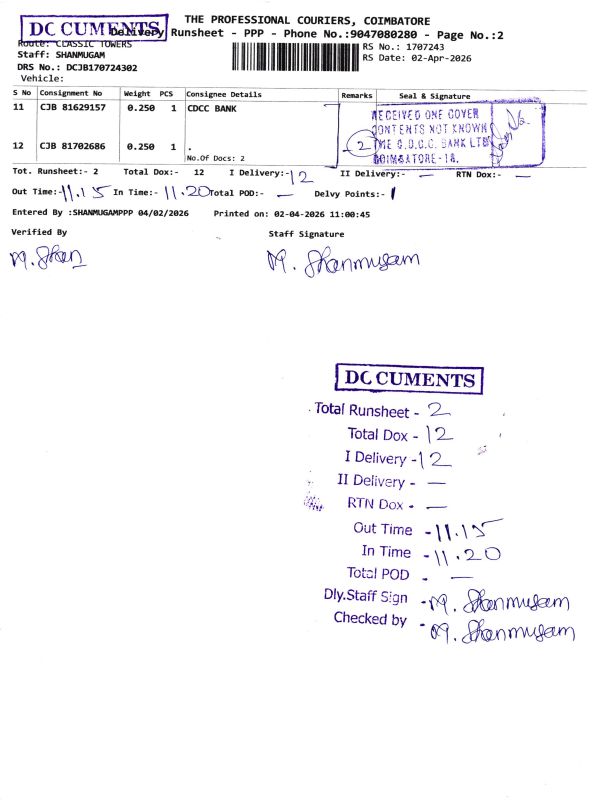 THE PROFESSIONAL COURIERS, COIMBATORE
DOCUMENTS
Delivery Runsheet - PPP - Phone No.:9047080280 - Page No.:2
Route: CLASSIC TOWERS
RS No.: 1707243
Staff: SHANMUGAM
RS Date: 02-Apr-2026
DRS No.: DCJB170724302
Vehicle:
S No Consignment No Weight PCS Consignee Details Remarks Seal & Signature
11 CJB 81629157 0.250 1 CDCC BANK
RECEIVED ONE COVER
CONTENTS NOT KNOWN
12 CJB 81702686 0.250 1 .
2 THE C.D.C.C. BANK LTD
COIMBATORE-18.
No.Of Docs: 2
Tot. Runsheet:- 2 Total Dox:- 12 I Delivery:- 12 II Delivery:- — RTN Dox:- —
Out Time:- 11.15 In Time:- 11.20 Total POD:- — Delvy Points:- 1
Entered By :SHANMUGAMPPP 04/02/2026 Printed on: 02-04-2026 11:00:45
Verified By Staff Signature
M. Shan M. Shanmugam
DOCUMENTS
Total Runsheet - 2
Total Dox - 12
I Delivery - 12
II Delivery - —
RTN Dox - —
Out Time - 11.15
In Time - 11.20
Total POD - —
Dly.Staff Sign - M. Shanmugam
Checked by - M. Shanmugam